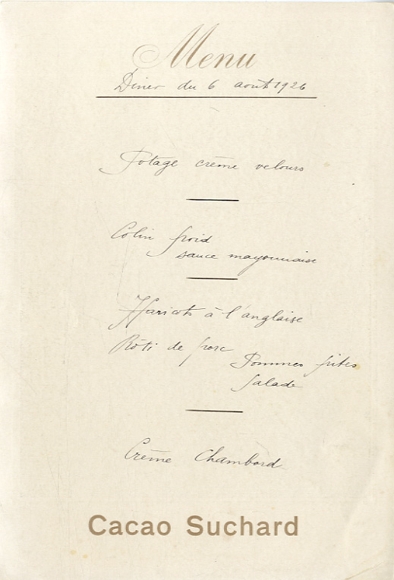 Menu
Dîner du 6 août 1926
Potage crème velours
Colin froid
sauce mayonnaise
Haricots à l'anglaise
Rôti de porc
Pommes frites
Salade
Crème Chambord
Cacao Suchard